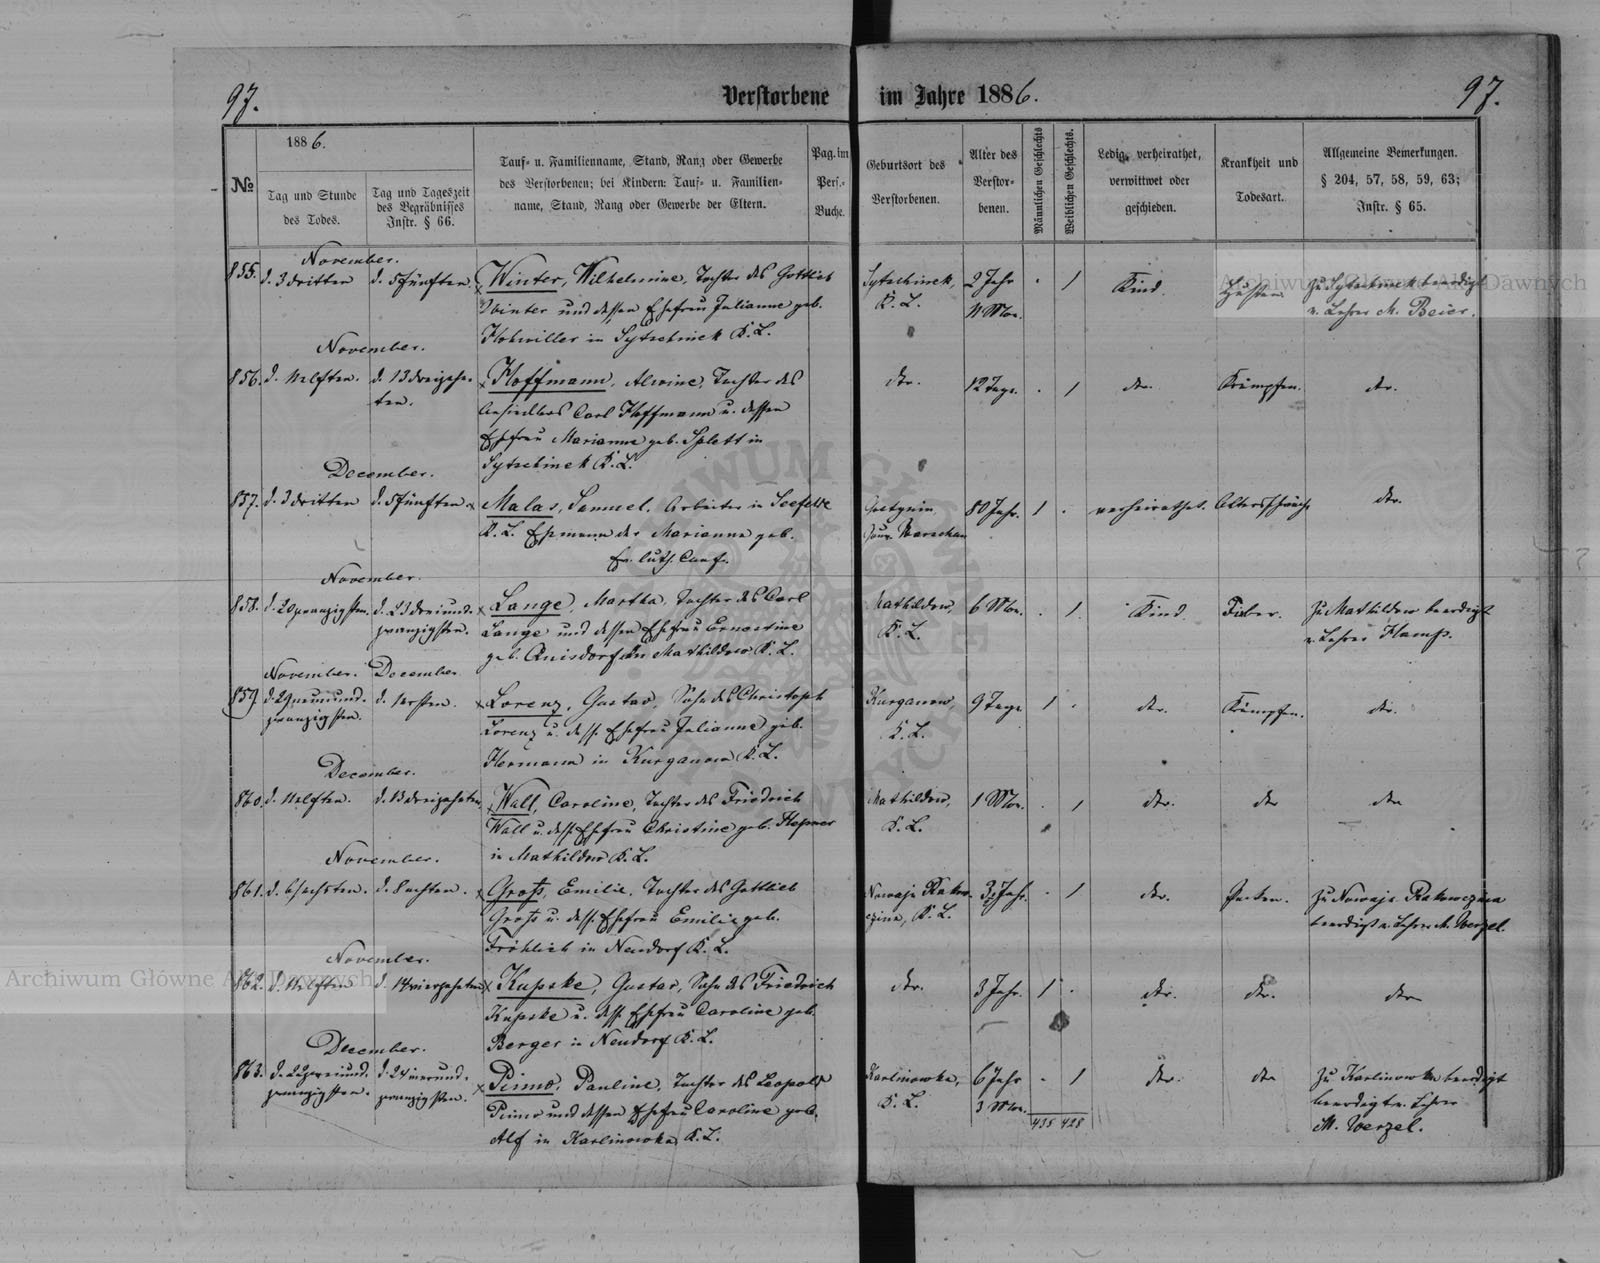 97.
Verstorbene im Jahre 1886.
97.
№
1886.
Tag und Stunde
des Todes.
Tag und Tageszeit
des Begräbnisses
Instr. § 66.
Tauf- u. Familienname, Stand, Rang oder Gewerbe
des Verstorbenen; bei Kindern: Tauf- u. Familien-
name, Stand, Rang oder Gewerbe der Eltern.
Pag. im
Pers.-
Buche.
Geburtsort des
Verstorbenen.
Alter des
Verstor-
benen.
Männlichen Geschlechts
Weiblichen Geschlechts.
Ledig, verheirathet,
verwittwet oder
geschieden.
Krankheit und
Todesart.
Allgemeine Bemerkungen.
§ 204, 57, 58, 59, 63;
Instr. § 65.
November.
855. d. 3 dritten d. 5 fünften. Winter, Wilhelmine, Tochter des Gottlieb
Winter und dessen Ehefrau Julianne geb.
in Sytschinek K. L.
Sytschinek,
K. L.
2 Jahr
11 Mon.
1
Kind.
Husten
zu Sytschinek beerdigt
v. Lehrer M. Beier.
November.
856. d. 11 elften. d. 13 dreizehn-
ten.
Hoffmann, Alwine, Tochter des
Ansiedlers Carl Hoffmann u. dessen
Ehefrau Marianne geb. Splett in
Sytschinek K. L.
dto.
12 Tage.
1
dto.
Krämpfen.
dto.
December.
857. d. 3 dritten d. 5 fünften. Malas, Samuel, Arbeiter in Seefelde
K. L. Ehemann der Marianne geb.
Ev. luth. Conf.
Gostynin,
Gouv. Warschau
80 Jahr.
1
verheirathet.
Altersschwäche
dto.
November.
858. d. 20 zwanzigsten. d. 23 dreiund-
zwanzigsten.
Lange, Martha, Tochter des Carl
Lange und dessen Ehefrau Ernestine
geb. in Mathildow K. L.
Mathildow,
K. L.
6 Mon.
1
Kind
Fieber.
zu Mathildow beerdigt
v. Lehrer
November. December
859. d. 29 neunund-
zwanzigsten.
d. 1 ersten.
Lorenz, Gustav, Sohn des Christoph
Lorenz u. dess. Ehefrau Julianne geb.
Hermann in Kurganow K. L.
Kurganow,
K. L.
9 Tage
1
dto.
Krämpfen.
dto.
December.
860. d. 11 elften. d. 13 dreizehnten. Wall, Caroline, Tochter des Friedrich
Wall u. dess. Ehefrau Christine geb.
in Mathildow K. L.
Mathildow,
K. L.
1 Mon.
1
dto.
dto
dto
November.
861. d. 6 sechsten. d. 8 achten. Groß, Emilie, Tochter des Gottlieb
Groß u. dess. Ehefrau Emilie geb.
Fröhlich in Neudorf K. L.
Nowaja Rakow-
czina, K. L.
1
dto.
Pocken.
zu Nowaja Rakowczina
beerdigt v. Lehrer M. Werzel.
November.
862. d. 11 elften d. 14 vierzehnten Kupske, Gustav, Sohn des Friedrich
Kupske u. dess. Ehefrau Caroline geb.
Berger in Neudorf K. L.
dto.
3 Jahr.
1
dto.
dto.
dto
December.
863. d. 22 zweiund-
zwanzigsten.
d. 24 vierund-
zwanzigsten.
Pauline, Tochter des Leopold
und dessen Ehefrau Caroline geb.
Alf in Karlinowka K. L.
Karlinowka,
K. L.
6 Jahr
3 Mon.
1
dto.
dto
zu Karlinowka beerdigt
beerdigt v. Lehrer
M. Werzel.
435 428
Archiwum Główne Akt Dawnych
Archiwum Główne Akt Dawnych
ARCHIWUM GŁÓWNE AKT DAWNYCH